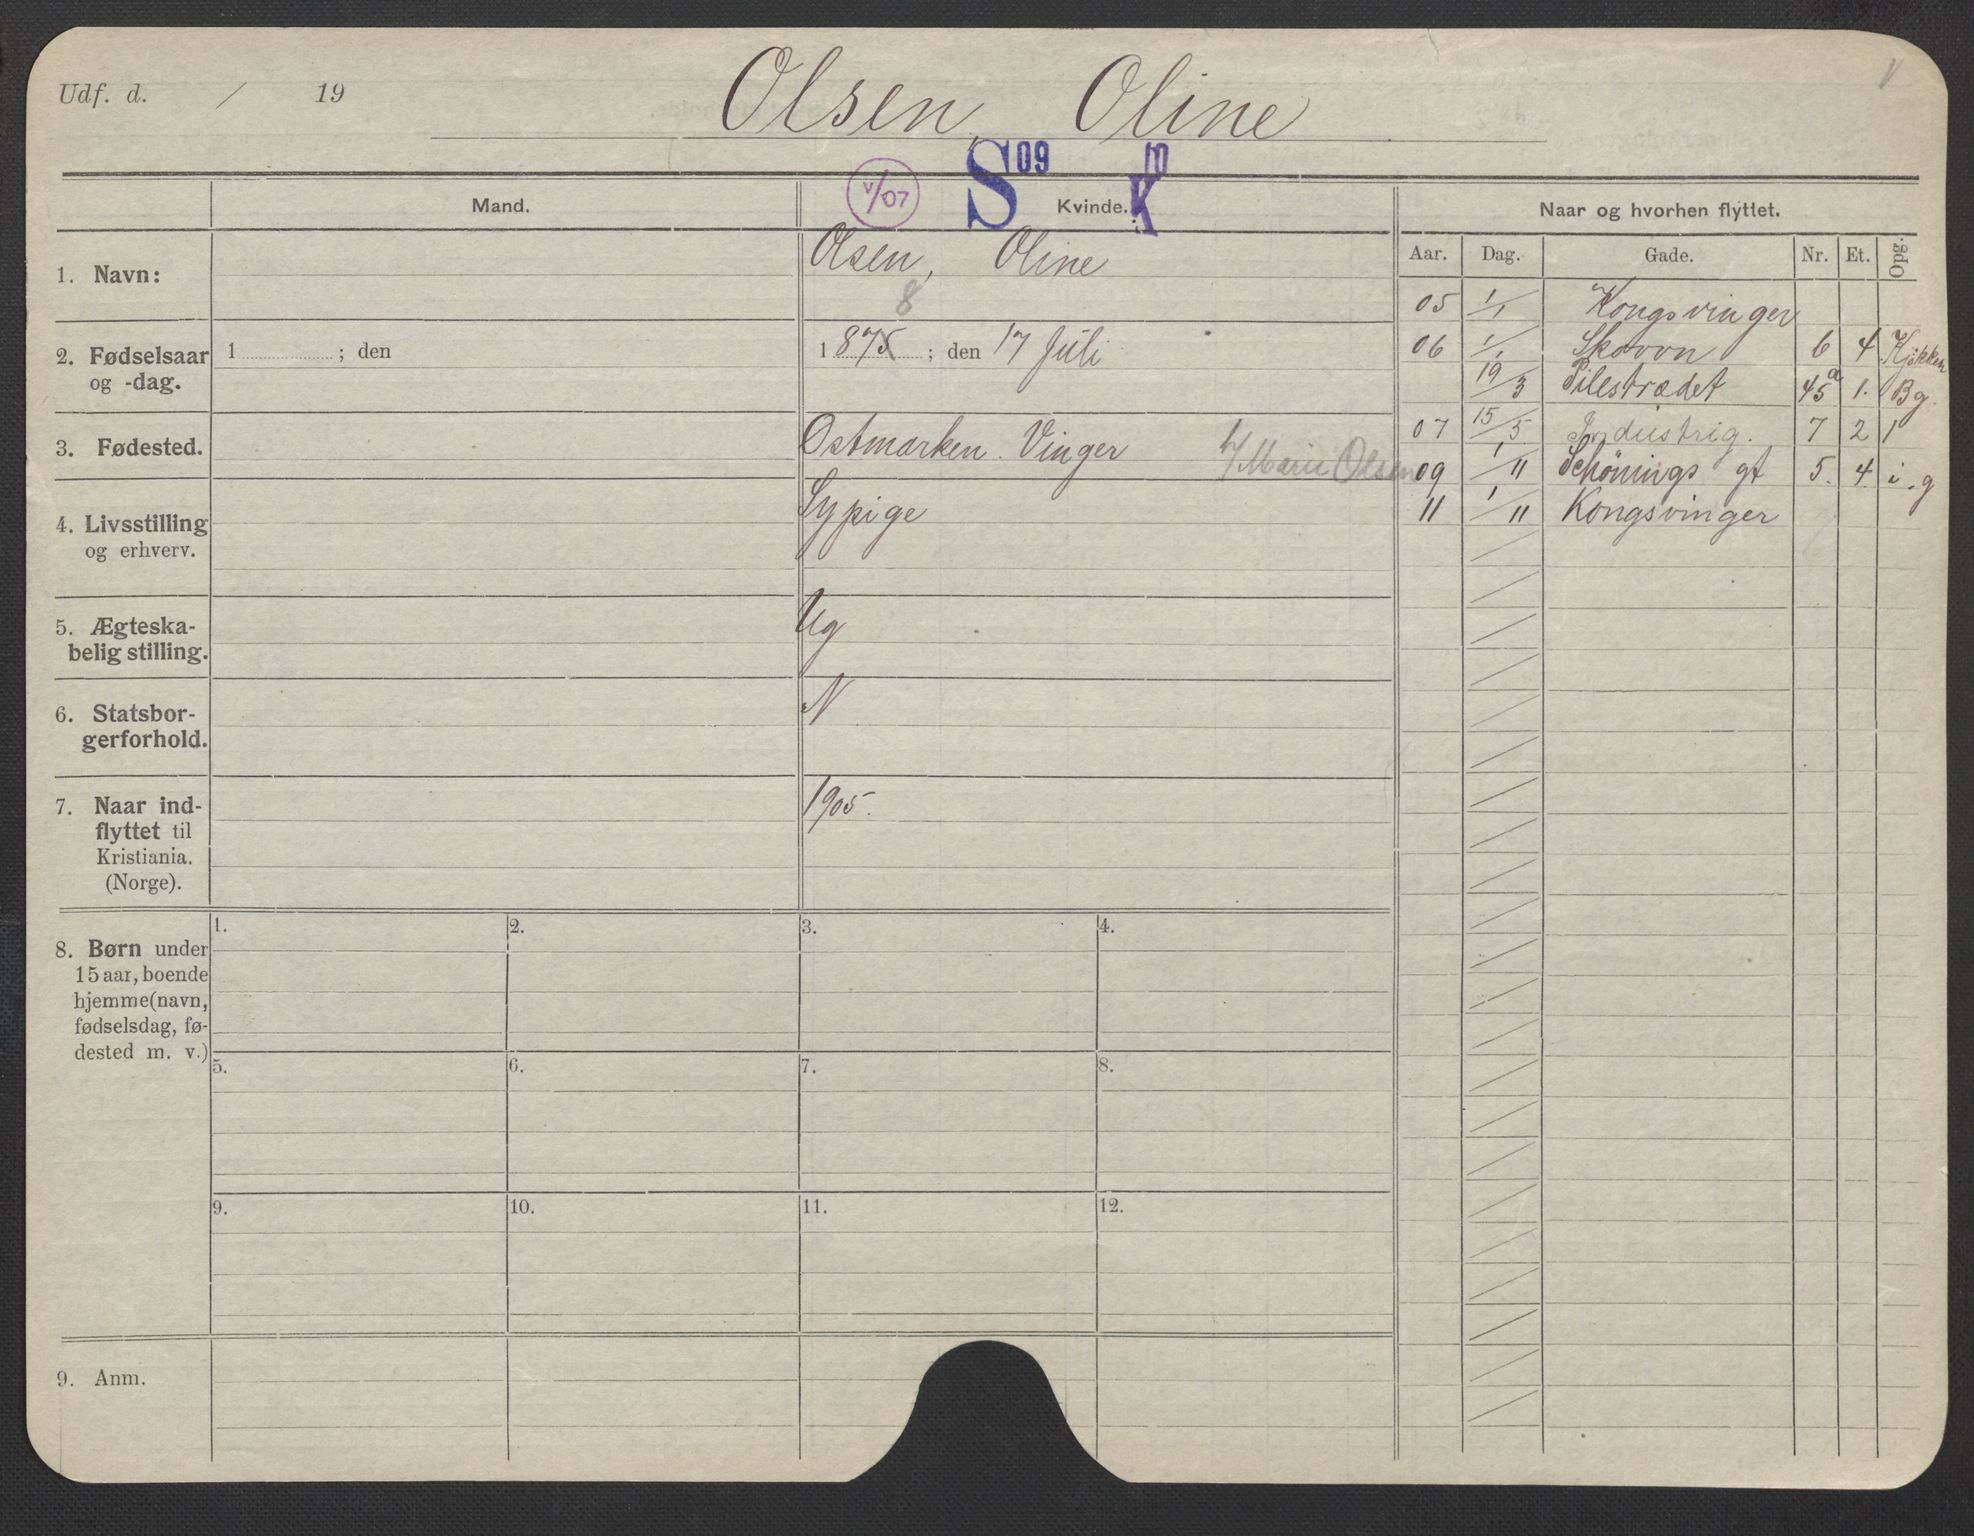 Udf. d. / 19
Olsen, Oline
V/07 S 09 K 10
Mand.
Kvinde.
Naar og hvorhen flyttet.
Aar. Dag. Gade. Nr. Et. Opg.
1. Navn:
Olsen, Oline
8
2. Fødselsaar og -dag.
1 ; den
1875 ; den 17 Juli
3. Fødested.
Ostmarken. Vinger
Marie Olsen
4. Livsstilling
og erhverv.
Sypige
5. Ægteska-
belig stilling.
Ug
6. Statsbor-
gerforhold.
N
7. Naar ind-
flyttet til
Kristiania.
(Norge).
1905.
8. Børn under
15 aar, boende
hjemme (navn,
fødselsdag, fø-
dested m. v.)
1. 2. 3. 4.
5. 6. 7. 8.
9. 10. 11. 12.
9. Anm.
05 1/1 Kongsvinger
06 1/1 Skovvn 6 4 Kjøkken
19/3 Pilestrædet 45a 1. Bg.
07 15/5 Industrig. 7 2 1
09 1/11 Schønings gt 5. 4. i.g
11 1/11 Kongsvinger